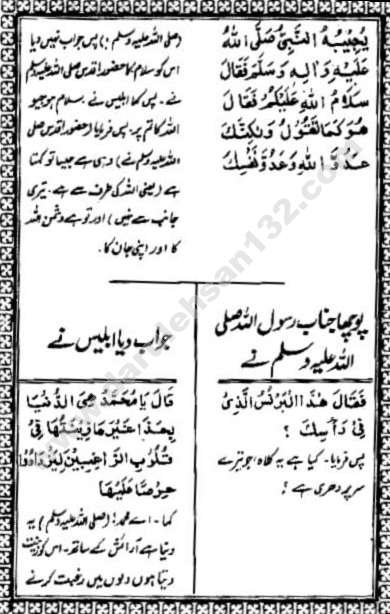 يُجِبْهُ النَّبِيُّ صَلَّى اللهُ
عَلَيْهِ وَاٰلِهِ وَسَلَّمَ فَقَالَ
سَلَامُ اللهِ عَلَيْكُمْ فَقَالَ
هُوَ كَمَا تَقُوْلُ وَلٰكِنَّكَ
عَدُوُّ اللهِ وَعَدُوُّ نَفْسِكَ
(صلی اللہ علیہ وسلم) پس جواب نہیں دیا
اس کو سلام کا حضور اقدس صلی اللہ علیہ وسلم
نے۔ پس کہا ابلیس نے۔ سلام ہو جیو
اللہ کا تم پر۔ پس فرمایا (حضور اقدس صلی
اللہ علیہ وسلم نے) وہی ہے جیسا تو کہتا
ہے (یعنی اللہ کی طرف سے ہے۔ تیری
جانب سے نہیں) اور تو ہے دشمن اللہ
کا اور اپنی جان کا۔
پوچھا جناب رسول اللہ صلی
اللہ علیہ وسلم نے
جواب دیا ابلیس نے
فَقَالَ هٰذَا الْبُرْنُسُ الَّذِیْ
فِیْ رَاْسِكَ ؟
پس فرمایا۔ کیا ہے یہ کلاہ، جو تیرے
سر پر دھری ہے ؟
قَالَ يَا مُحَمَّدُ هِيَ الدُّنْيَا
بِحَذَا فِيْرِهَا زِيْنَتُهَا فِیْ
قُلُوْبِ الرَّاغِبِيْنَ لِيَزْدَادُوْا
حِرْصًا عَلَيْهَا
کہا۔ اے محمد! (صلی اللہ علیہ وسلم) یہ
دنیا ہے آرائش کے ساتھ۔ اس کو زینت
دیتا ہوں دلوں میں رغبت کرنے